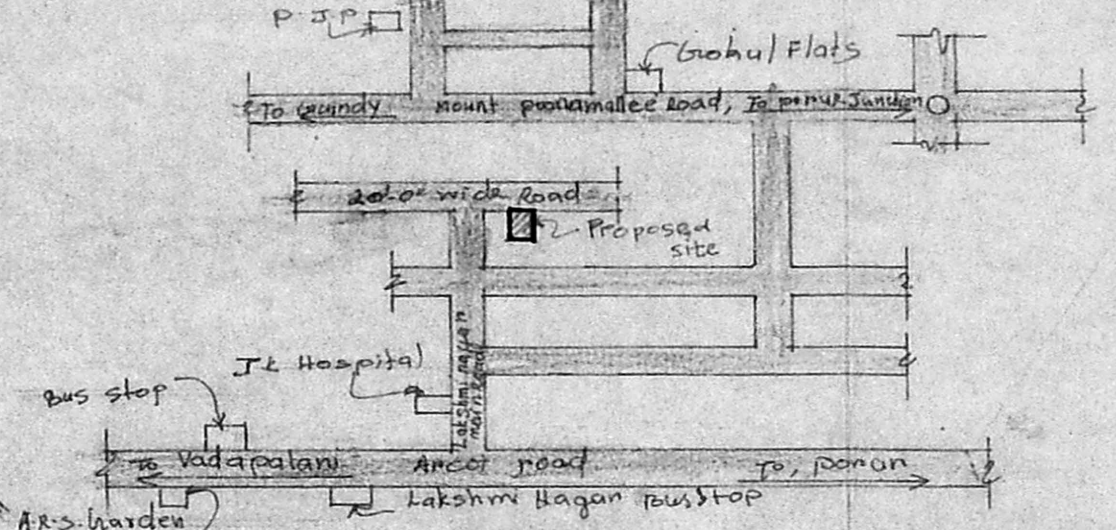 P.J.P
Gokul Flats
To Guindy Mount poonamallee Road, To porur Junction
20'-0" wide Road
Proposed
site
Lakshmi nagar
main Road
Jk Hospital
Bus stop
To Vadapalani Arcot road To, porur
Lakshmi Nagar Bus Stop
A.R.S. Garden